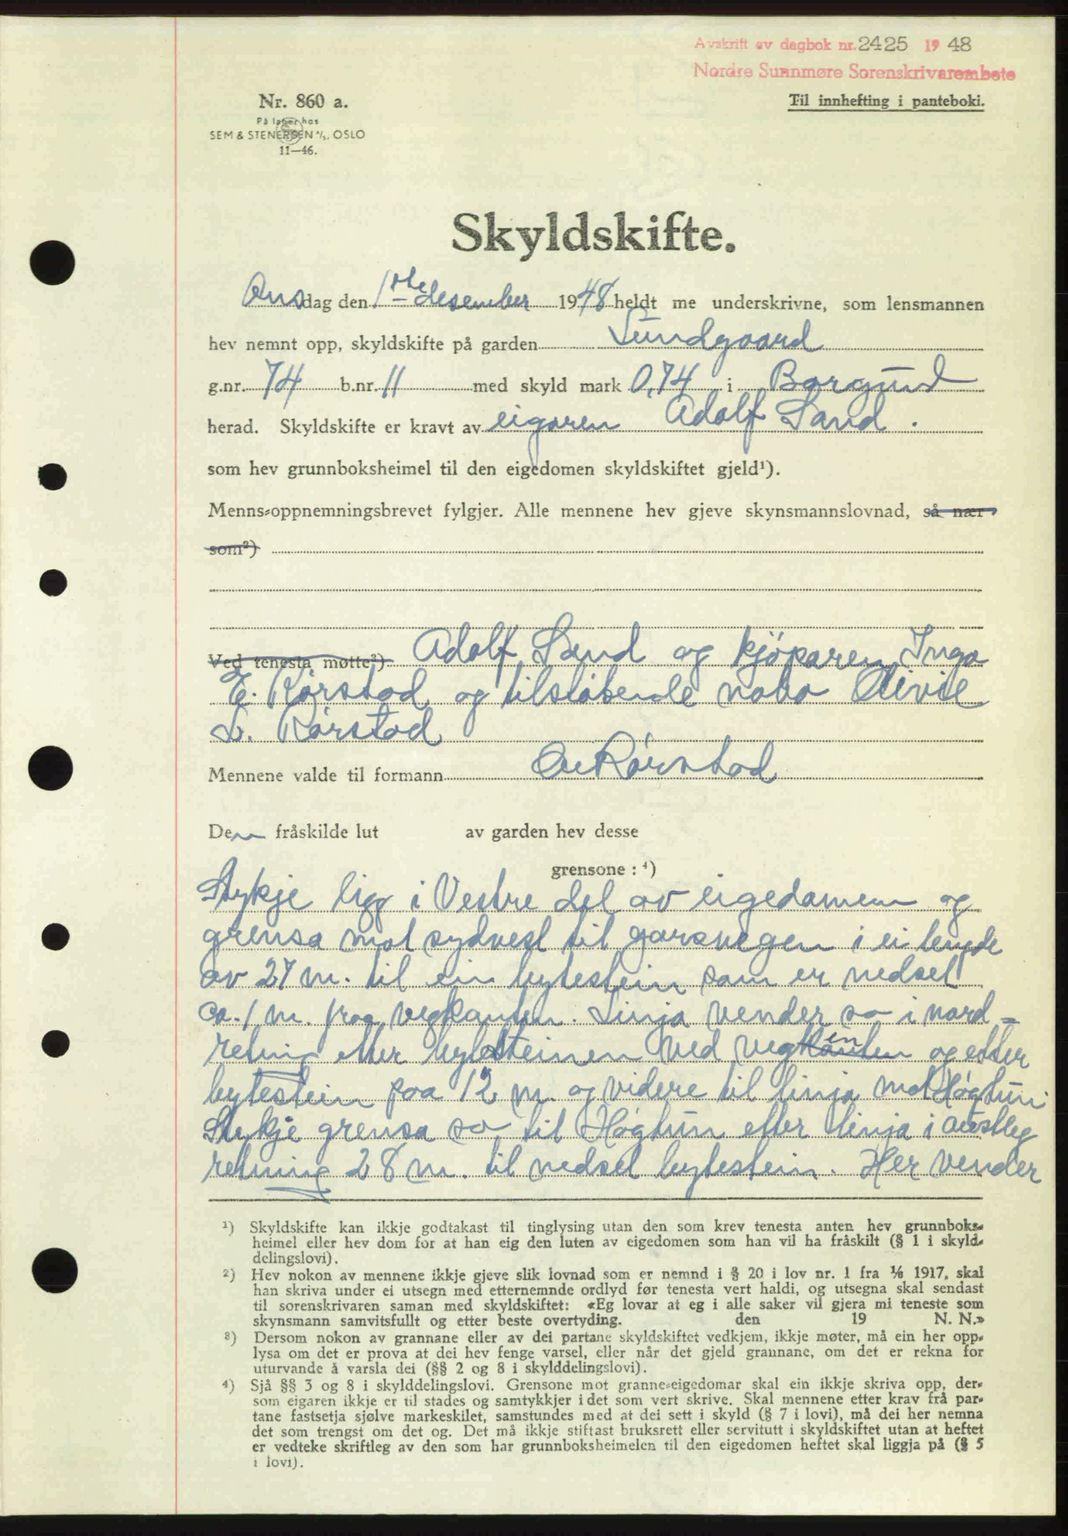 Avskrift av dagbok nr. 2425 1948
Nordre Sunnmøre Sorenskrivarembete
Nr. 860 a.
Til innhefting i panteboki.
På lager hos
SEM & STENERSEN A/S, OSLO
11—46.
Skyldskifte.
Onsdag den 1ste desember 1948 heldt me underskrivne, som lensmannen
hev nemnt opp, skyldskifte på garden Sundgaard
g.nr. 74 b.nr. 11 med skyld mark 0,74 i Borgund
herad. Skyldskifte er kravt av eigaren Adolf Sand.
som hev grunnboksheimel til den eigedomen skyldskiftet gjeld¹).
Menns-oppnemningsbrevet fylgjer. Alle mennene hev gjeve skynsmannslovnad, så nær
som²)
Ved tenesta møtte³) Adolf Sand og kjöparen Inga
E. Rørstad og tilstøtende nabo Olivie
L. Rørstad
Mennene valde til formann Ole Rørstad
Den fråskilde lut av garden hev desse
grensone : ⁴)
Stykje ligg i Vestre del av eigedomen og
grensa mot sydvest til garsvegen i ei lengde
av 27 m. til ein bytestein som er nedset
ca. 1 m. fraa vegkanten. Linja vender so i nord-
retning etter bytesteinen ved vegkanten en og etter
bytestein paa 12 m. og videre til linja mot Høgtun.
Stykje grensa so til Høgtun etter linja i austleg
retning 28 m. til nedset bytestein. Her vender
¹) Skyldskifte kan ikkje godtakast til tinglysing utan den som krev tenesta anten hev grunnboks-
heimel eller hev dom for at han eig den luten av eigedomen som han vil ha fråskilt (§ 1 i skyld-
delingslovi).
²) Hev nokon av mennene ikkje gjeve slik lovnad som er nemnd i § 20 i lov nr. 1 fra 1/6 1917, skal
han skriva under ei utsegn med etternemnde ordlyd før tenesta vert haldi, og utsegna skal sendast
til sorenskrivaren saman med skyldskiftet: «Eg lovar at eg i alle saker vil gjera mi teneste som
skynsmann samvitsfullt og etter beste overtyding. den 19 N. N.»
³) Dersom nokon av grannane eller av dei partane skyldskiftet vedkjem, ikkje møter, må ein her opp-
lysa om det er prova at dei hev fenge varsel, eller når det gjeld grannane, om det er rekna for
uturvande å varsla dei (§§ 2 og 8 i skylddelingslovi).
⁴) Sjå §§ 3 og 8 i skylddelingslovi. Grensone mot granne-eigedomar skal ein ikkje skriva opp, der-
som eigaren ikkje er til stades og samtykkjer i det som vert skrive. Skal mennene etter krav frå par-
tane fastsetja sjølve markeskilet, samstundes med at dei sett i skyld (§ 7 i lovi), må dei her nemna
det som trengst om det og. Det må ikkje stiftast bruksrett eller servitutt i skyldskiftet utan at heftet
er vedteke skriftleg av den som har grunnboksheimelen til den eigedomen heftet skal liggja på (§ 5
i lovi).